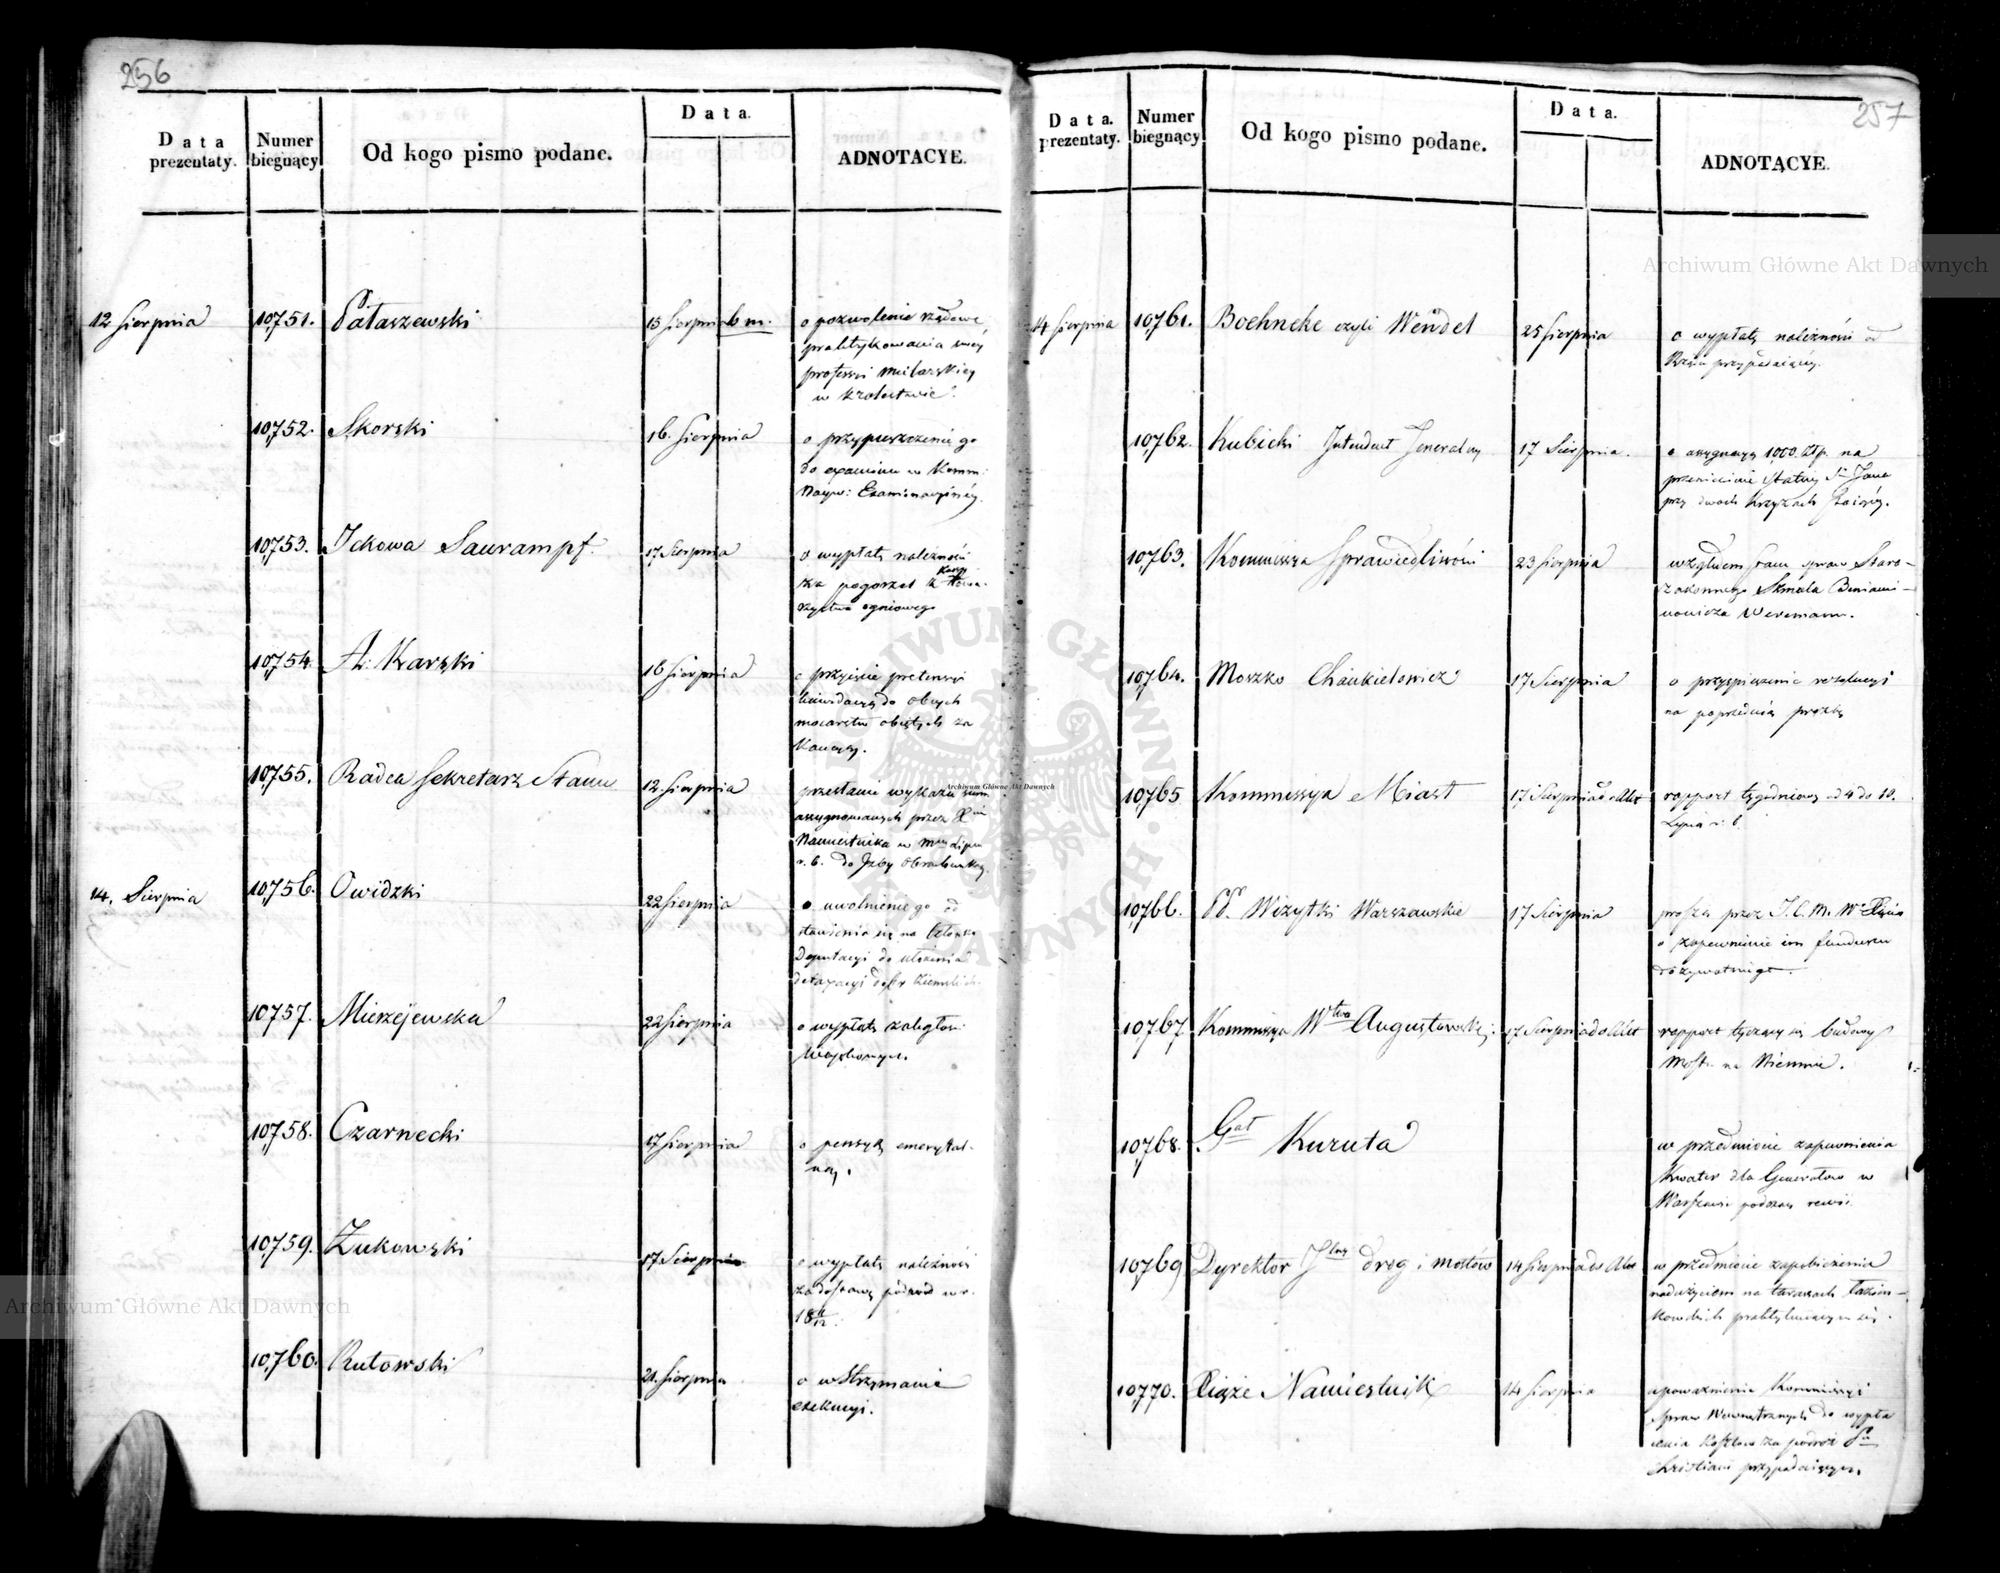 256
Data prezentaty.
Numer biegnący
Od kogo pismo podane.
Data.
ADNOTACYE.
12 Sierpnia
10,751.
Pataszewski
15 Sierpnia b m.
o pozwolenie rządowe
praktykowania swey
professyi mularskiey
w Krolestwie.
10,752.
Skorski
16. Sierpnia
o przypuszczenie go
do examinu w Komm:
Nayw: Examinacyinéy.
10,753.
Ickowa Saurampf.
17 Sierpnia
o wypłatę należności
za pogorzel z
ogniowego
10,754.
A. Karski
16 Sierpnia
o przyięcie pretensyi
do obcych
mocarstw obiętych za
Kaucyą.
10,755.
Radca Sekretarz Stanu
12. Sierpnia
przesłanie wykazu summ
assygnowanych przez Xcia
Namiestnika w mcu Lipcu
r. b. do Izby Obrachunkowey
14. Sierpnia
10,756.
Owidzki
22 Sierpnia
o uwolnienie go od
stawienia się na Członka
Deputacyi do ułożenia
detaxacyi dóbr Ziemskich
10,757.
Mierzejewska
22 Sierpnia
o wypłatę zaległości
10,758.
Czarnecki
17 Sierpnia
o pensyą emerytal-
ną.
10,759.
Żukowski
17 Sierpnia
o wypłatę należności
za dostawę podwod w r.
18 11/12.
10,760.
Rutowski
21. Sierpnia
o wstrzymanie
exekucyi.
257
Data. prezentaty.
Numer biegnący
Od kogo pismo podane.
Data.
ADNOTĄCYE.
14 Sierpnia
10,761.
Boehncke czyli Wendel
25 Sierpnia
o wypłatę należności od
Rządu przypadaiącéy.
10,762.
Kubicki Intendent Jeneralny
17 Sierpnia.
o assygnacyą 1,000. Złp. na
przeniesienie Statuy S. Jana
przy dwoch Krzyżach stoiącéy.
10,763.
Kommissya Sprawiedliwości
23 Sierpnia
względem stanu spraw Staro-
zakonnego Szmula Beniami-
nowicza
10,764.
Moszko Chaukielowicz
17 Sierpnia
o przyspieszenie rezolucyi
na poprzednią prozbę
10,765
Kommissya Miast
17 Sierpnia do Akt
rapport tygodniowy od 4 do 10.
Lipca r. b.
10,766.
PP. Wizytki Warszawskie
17 Sierpnia
proszą przez J. C. M. W. Xięcia
o zapewnienie im funduszu
dożywotniego.
10,767.
Kommissya Wtwa Augustowskiego
17 Sierpnia do Akt
rapport tyczący się budowy
Mostu na Niemnie.
10,768.
Gał Kuruta
w przedmiocie zapewnienia
Kwater dla Generałow w
Warszawie podczas rewii.
10,769
Dyrektor Jlny drog i mostów
14 Sierpnia do Akt
w przedmiocie zapobieżenia
nadużyciom na tarasach Łazien-
kowskich praktykuiącym się.
10,770.
Xiąże Namiestnik
14 Sierpnia
upoważnienie Kommissyi
Spraw Wewnętrznych do wypła-
cenia kosztow za podroż Pa
Christiani przypadaiących.
Archiwum Główne Akt Dawnych
Archiwum Główne Akt Dawnych
Archiwum Główne Akt Dawnych
ARCHIWUM GŁÓWNE AKT DAWNYCH